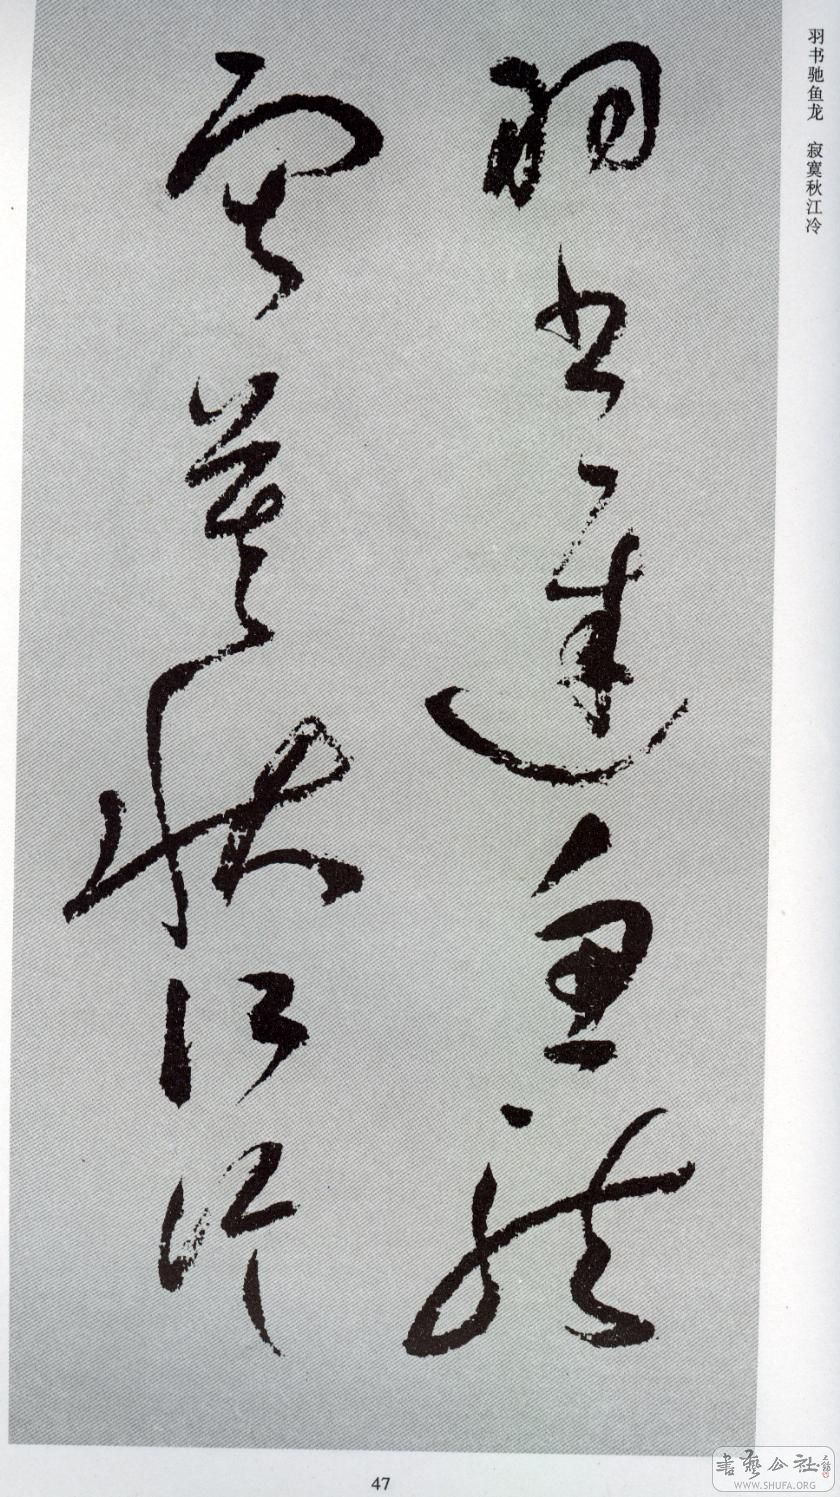 羽书驰鱼龙　寂寞秋江冷
羽書遲魚龍
寂寞秋江冷
47
書藝公社
WWW.SHUFA.ORG